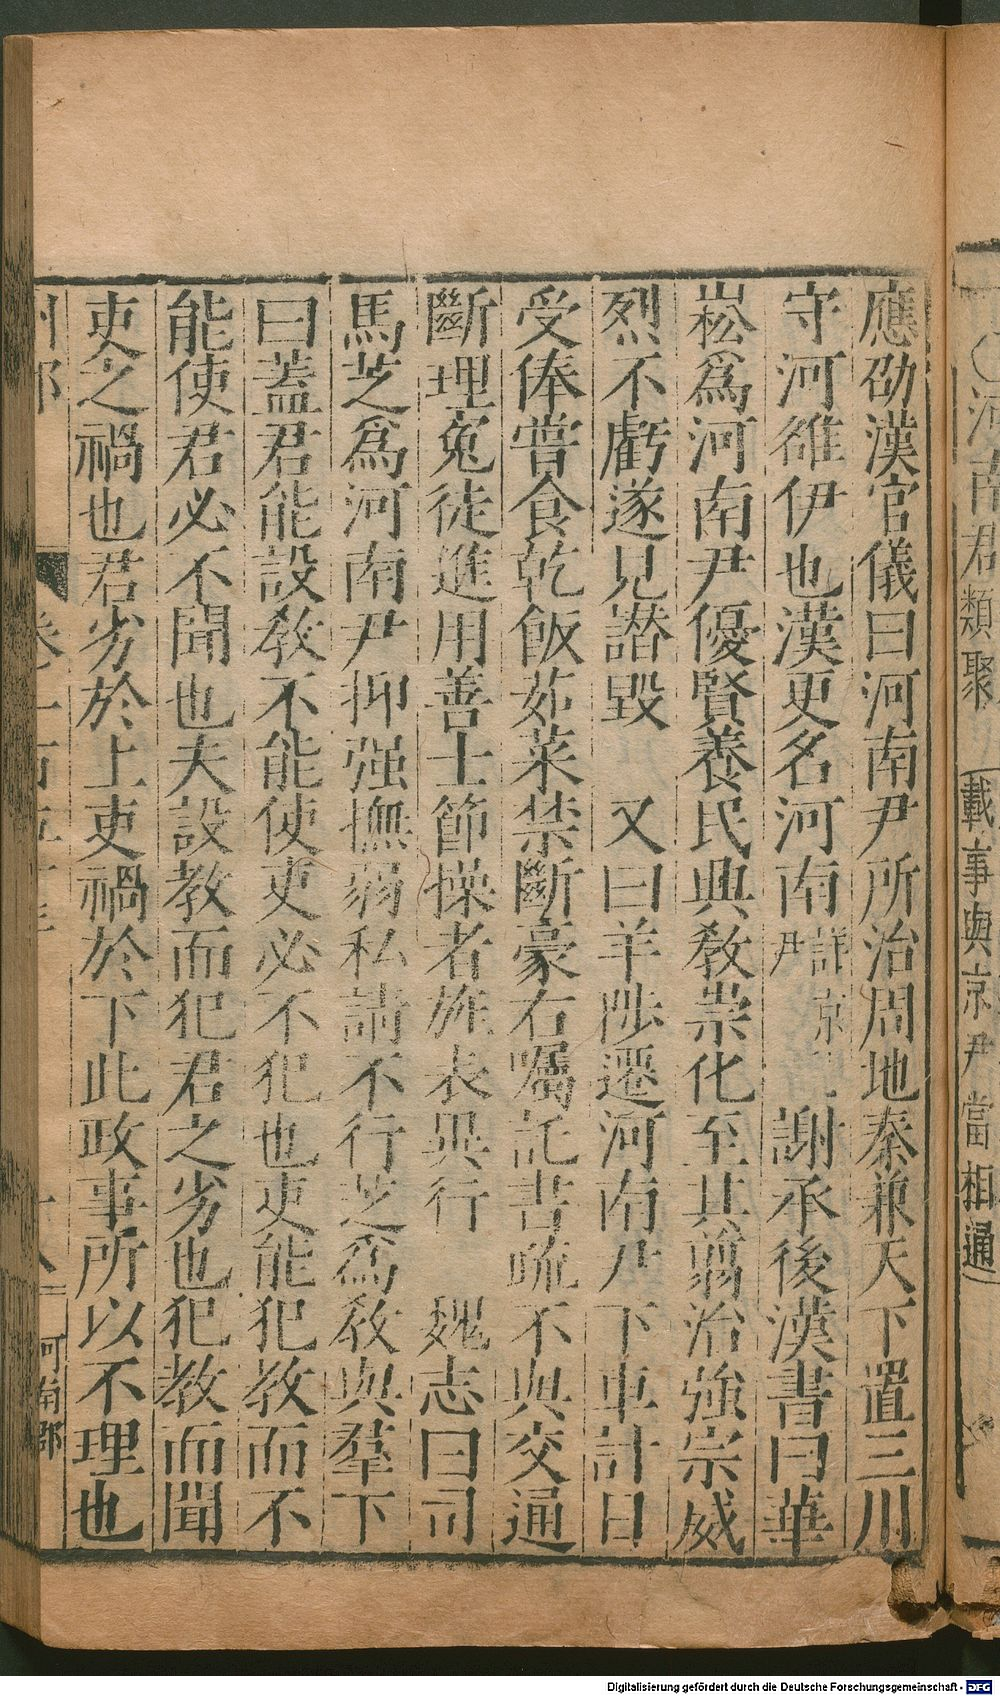 ○河南尹類聚(載事與京尹當相通)
應劭漢官儀曰河南尹所治周地秦兼天下置三川
守河雒伊也漢更名河南詳京尹 謝承後漢書曰華
崧爲河南尹優賢養民興教崇化至其翦治強宗威
烈不虧遂見譖毀 又曰羊陟遷河南尹下車計日
受俸嘗食乾飯茹菜禁斷豪右囑託書疏不與交通
斷理冤徒進用善士節操者旌表異行 魏志曰司
馬芝爲河南尹抑强撫弱私請不行芝爲教與羣下
曰蓋君能設教不能使吏必不犯也吏能犯教而不
能使君必不聞也夫設教而犯君之劣也犯教而聞
吏之禍也君劣於上吏禍於下此政事所以不理也
河南郡
Digitalisierung gefördert durch die Deutsche Forschungsgemeinschaft - DFG